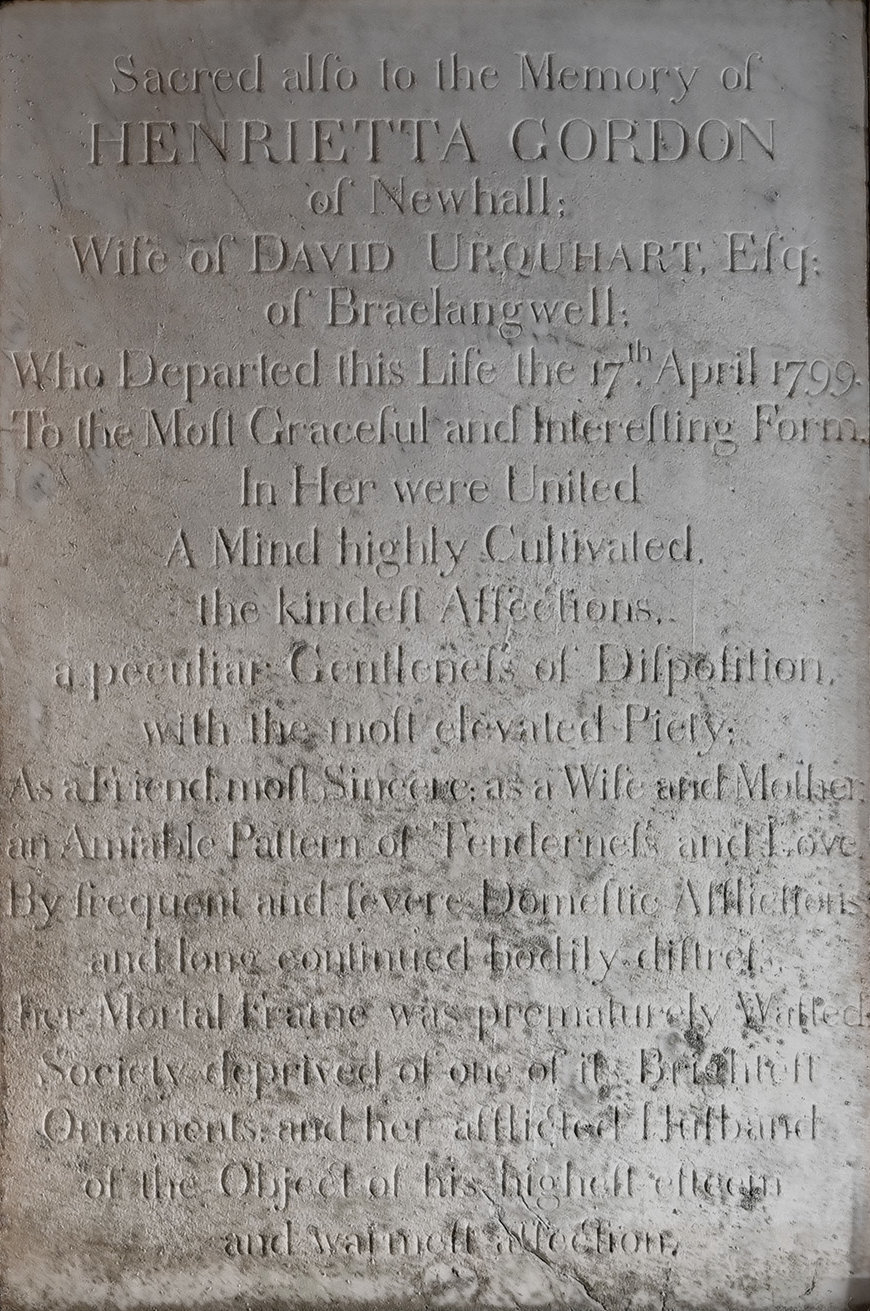 Sacred alſo to the Memory of
HENRIETTA GORDON
of Newhall;
Wife of DAVID URQUHART, Eſq;
of Braelangwell;
Who Departed this Life the 17th. April 1799.
To the Moſt Graceful and Intereſting Form,
In Her were United
A Mind highly Cultivated,
the kindeſt Affections,
a peculiar Gentleneſs of Diſpoſition,
with the moſt elevated Piety;
As a Friend, moſt Sincere; as a Wife and Mother,
an Amiable Pattern of Tenderneſs and Love.
By frequent and ſevere Domeſtic Afflictions
and long continued bodily diſtreſs,
her Mortal Frame was prematurely Waſted,
Society deprived of one of its Brighteſt
Ornaments; and her afflicted Huſband
of the Object of his higheſt eſteem
and warmeſt affection.